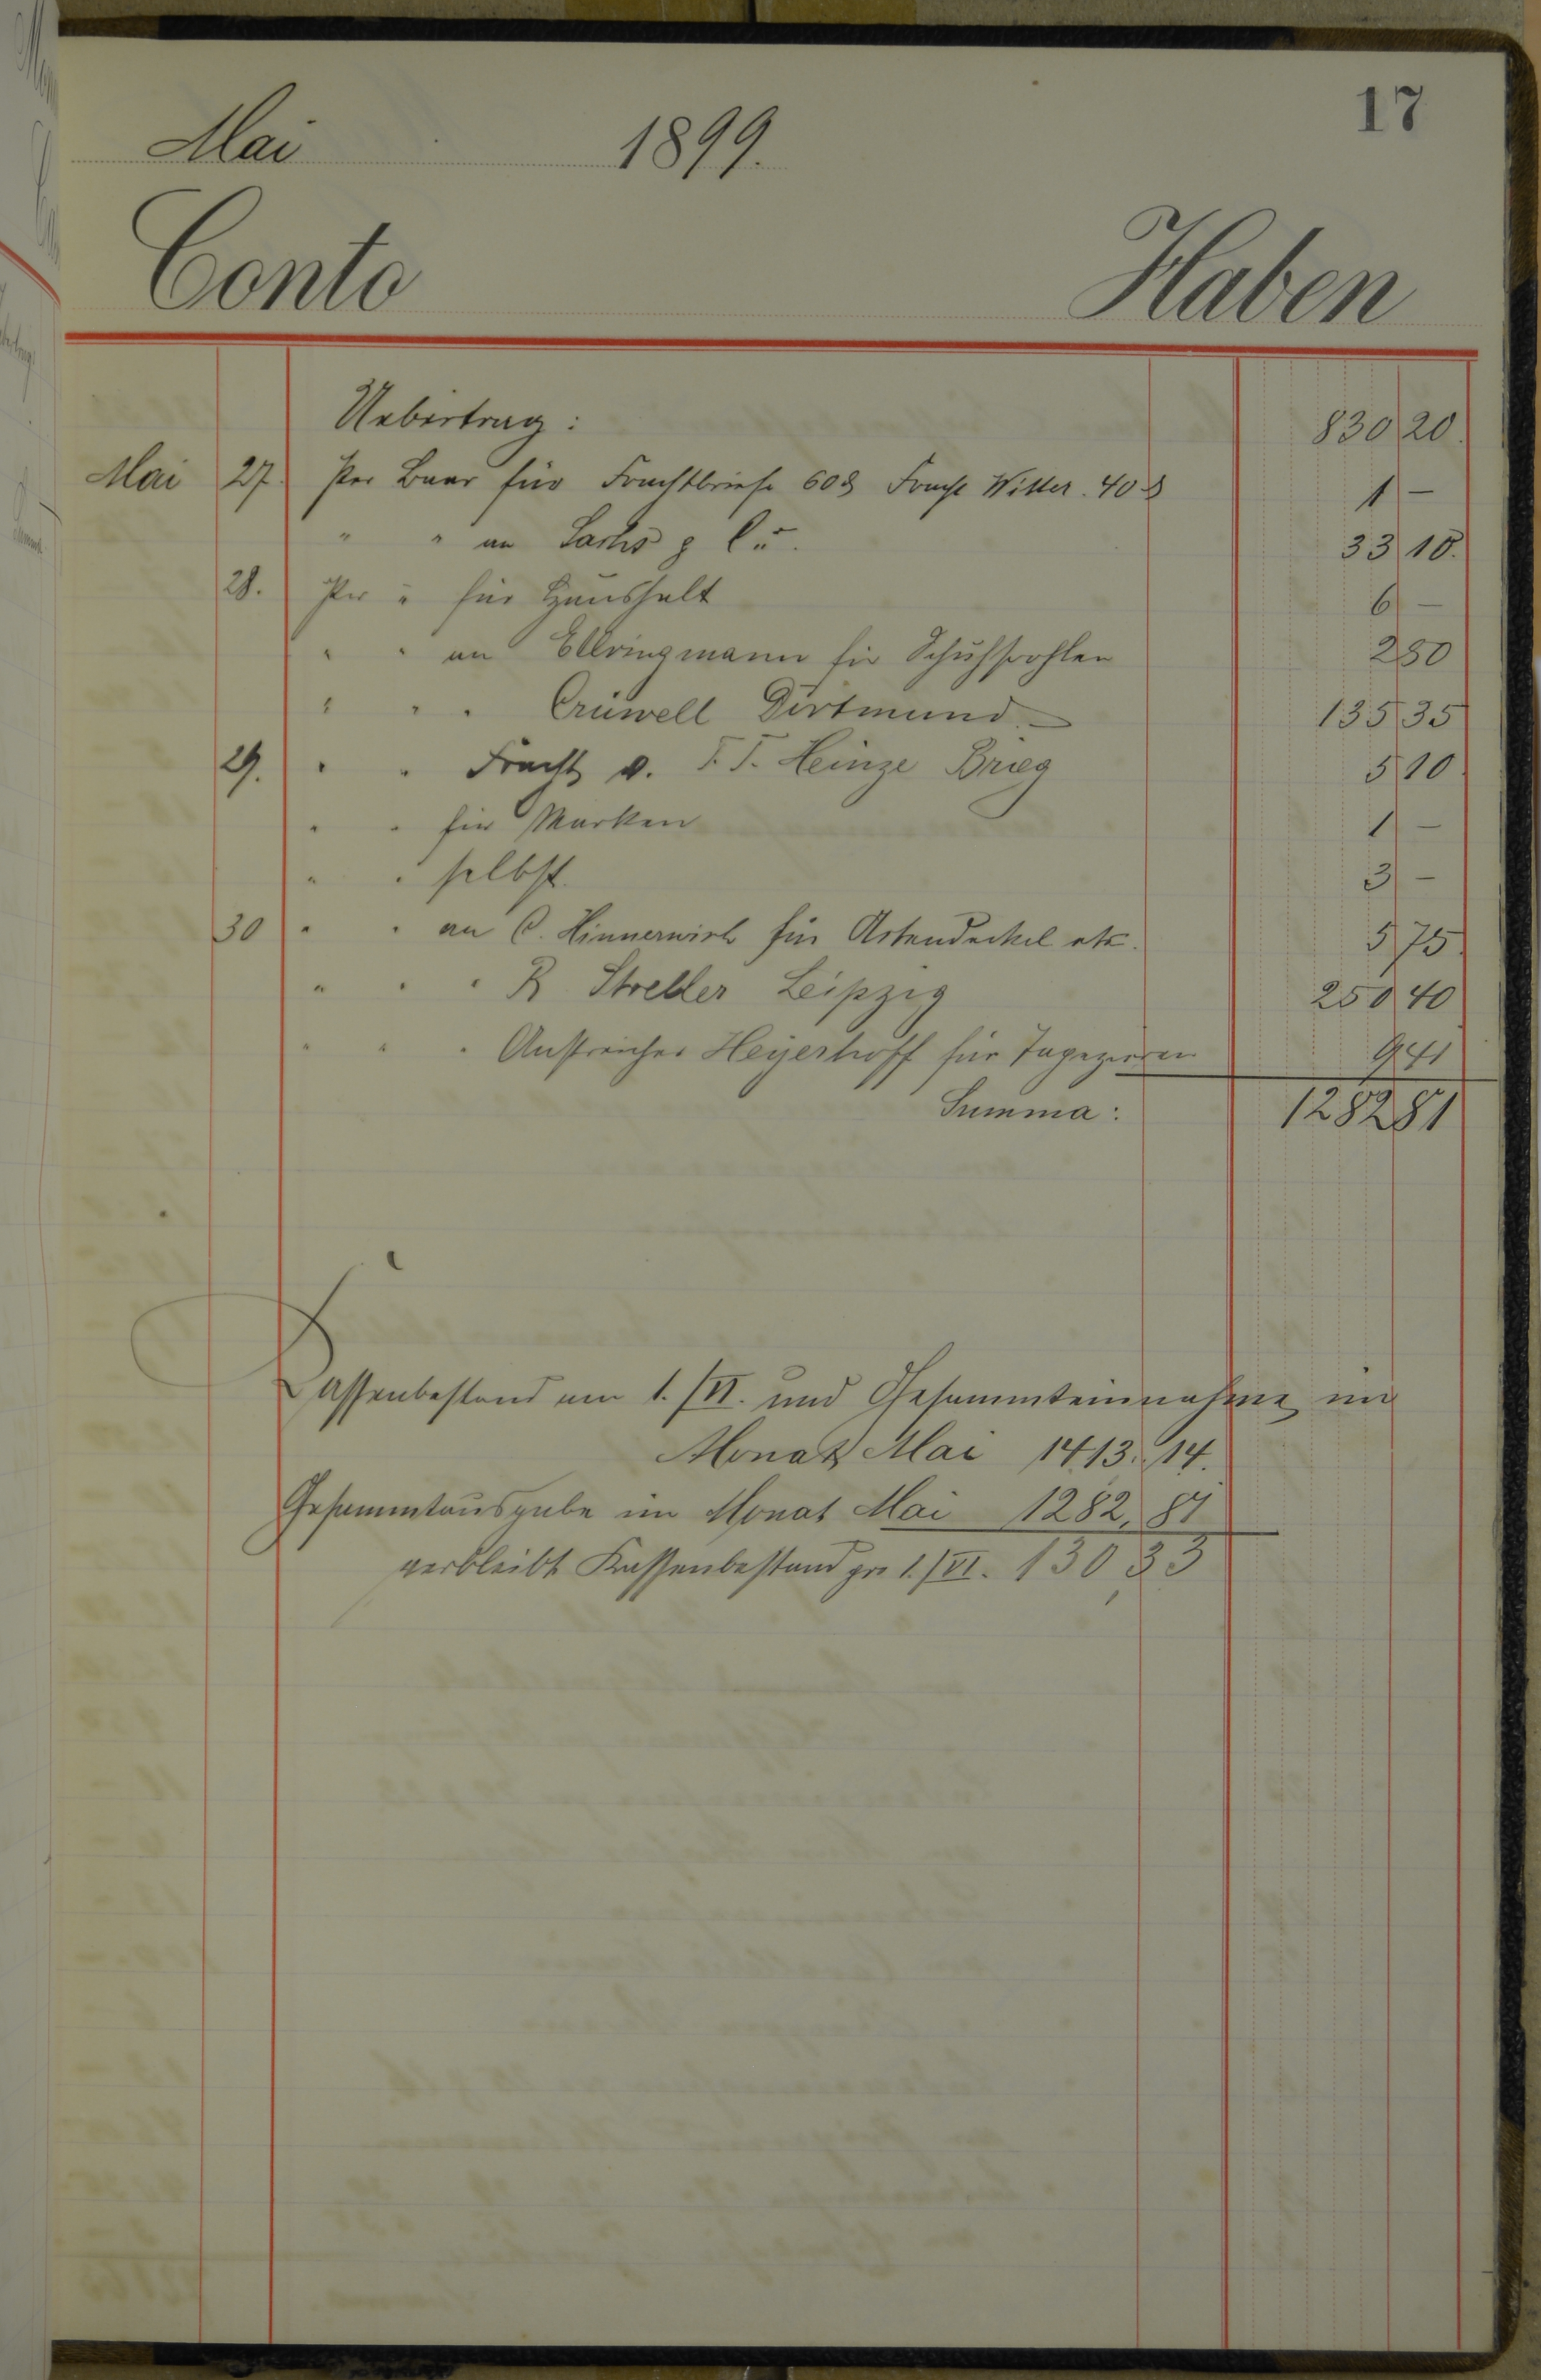 17
Mai 1899.
Conto Haben
Uebertrag: 830 20.
Mai 27. Per Baar für Frachtbriefe 60 ₰ Fracht Witter. 40 ₰ 1 –
" " an Sachs 33 10.
28. Per " für Haushalt 6 –
" " an Ellringmann für Schuhsohlen 2 80
" " " Crüwell Dortmund 135 35
29. " " Fracht v. F. T. Heinze Brieg 5 10
" " für Marken 1 –
" " selbst. 3 –
30 " " an C. Hinnerwisch für Actendeckel etc. 5 75.
" " " R. Streller Leipzig 250 40
" " " Anstreicher Heyerhoff für Tapezieren 9 41
Summa: 1282 81
Cassenbestand am 1./VI. und Gesammteinnahme im
Monat Mai 1413. 14.
Gesammtausgabe im Monat Mai 1282, 81
verbleibt Kassenbestand pr 1./VI. 130,33